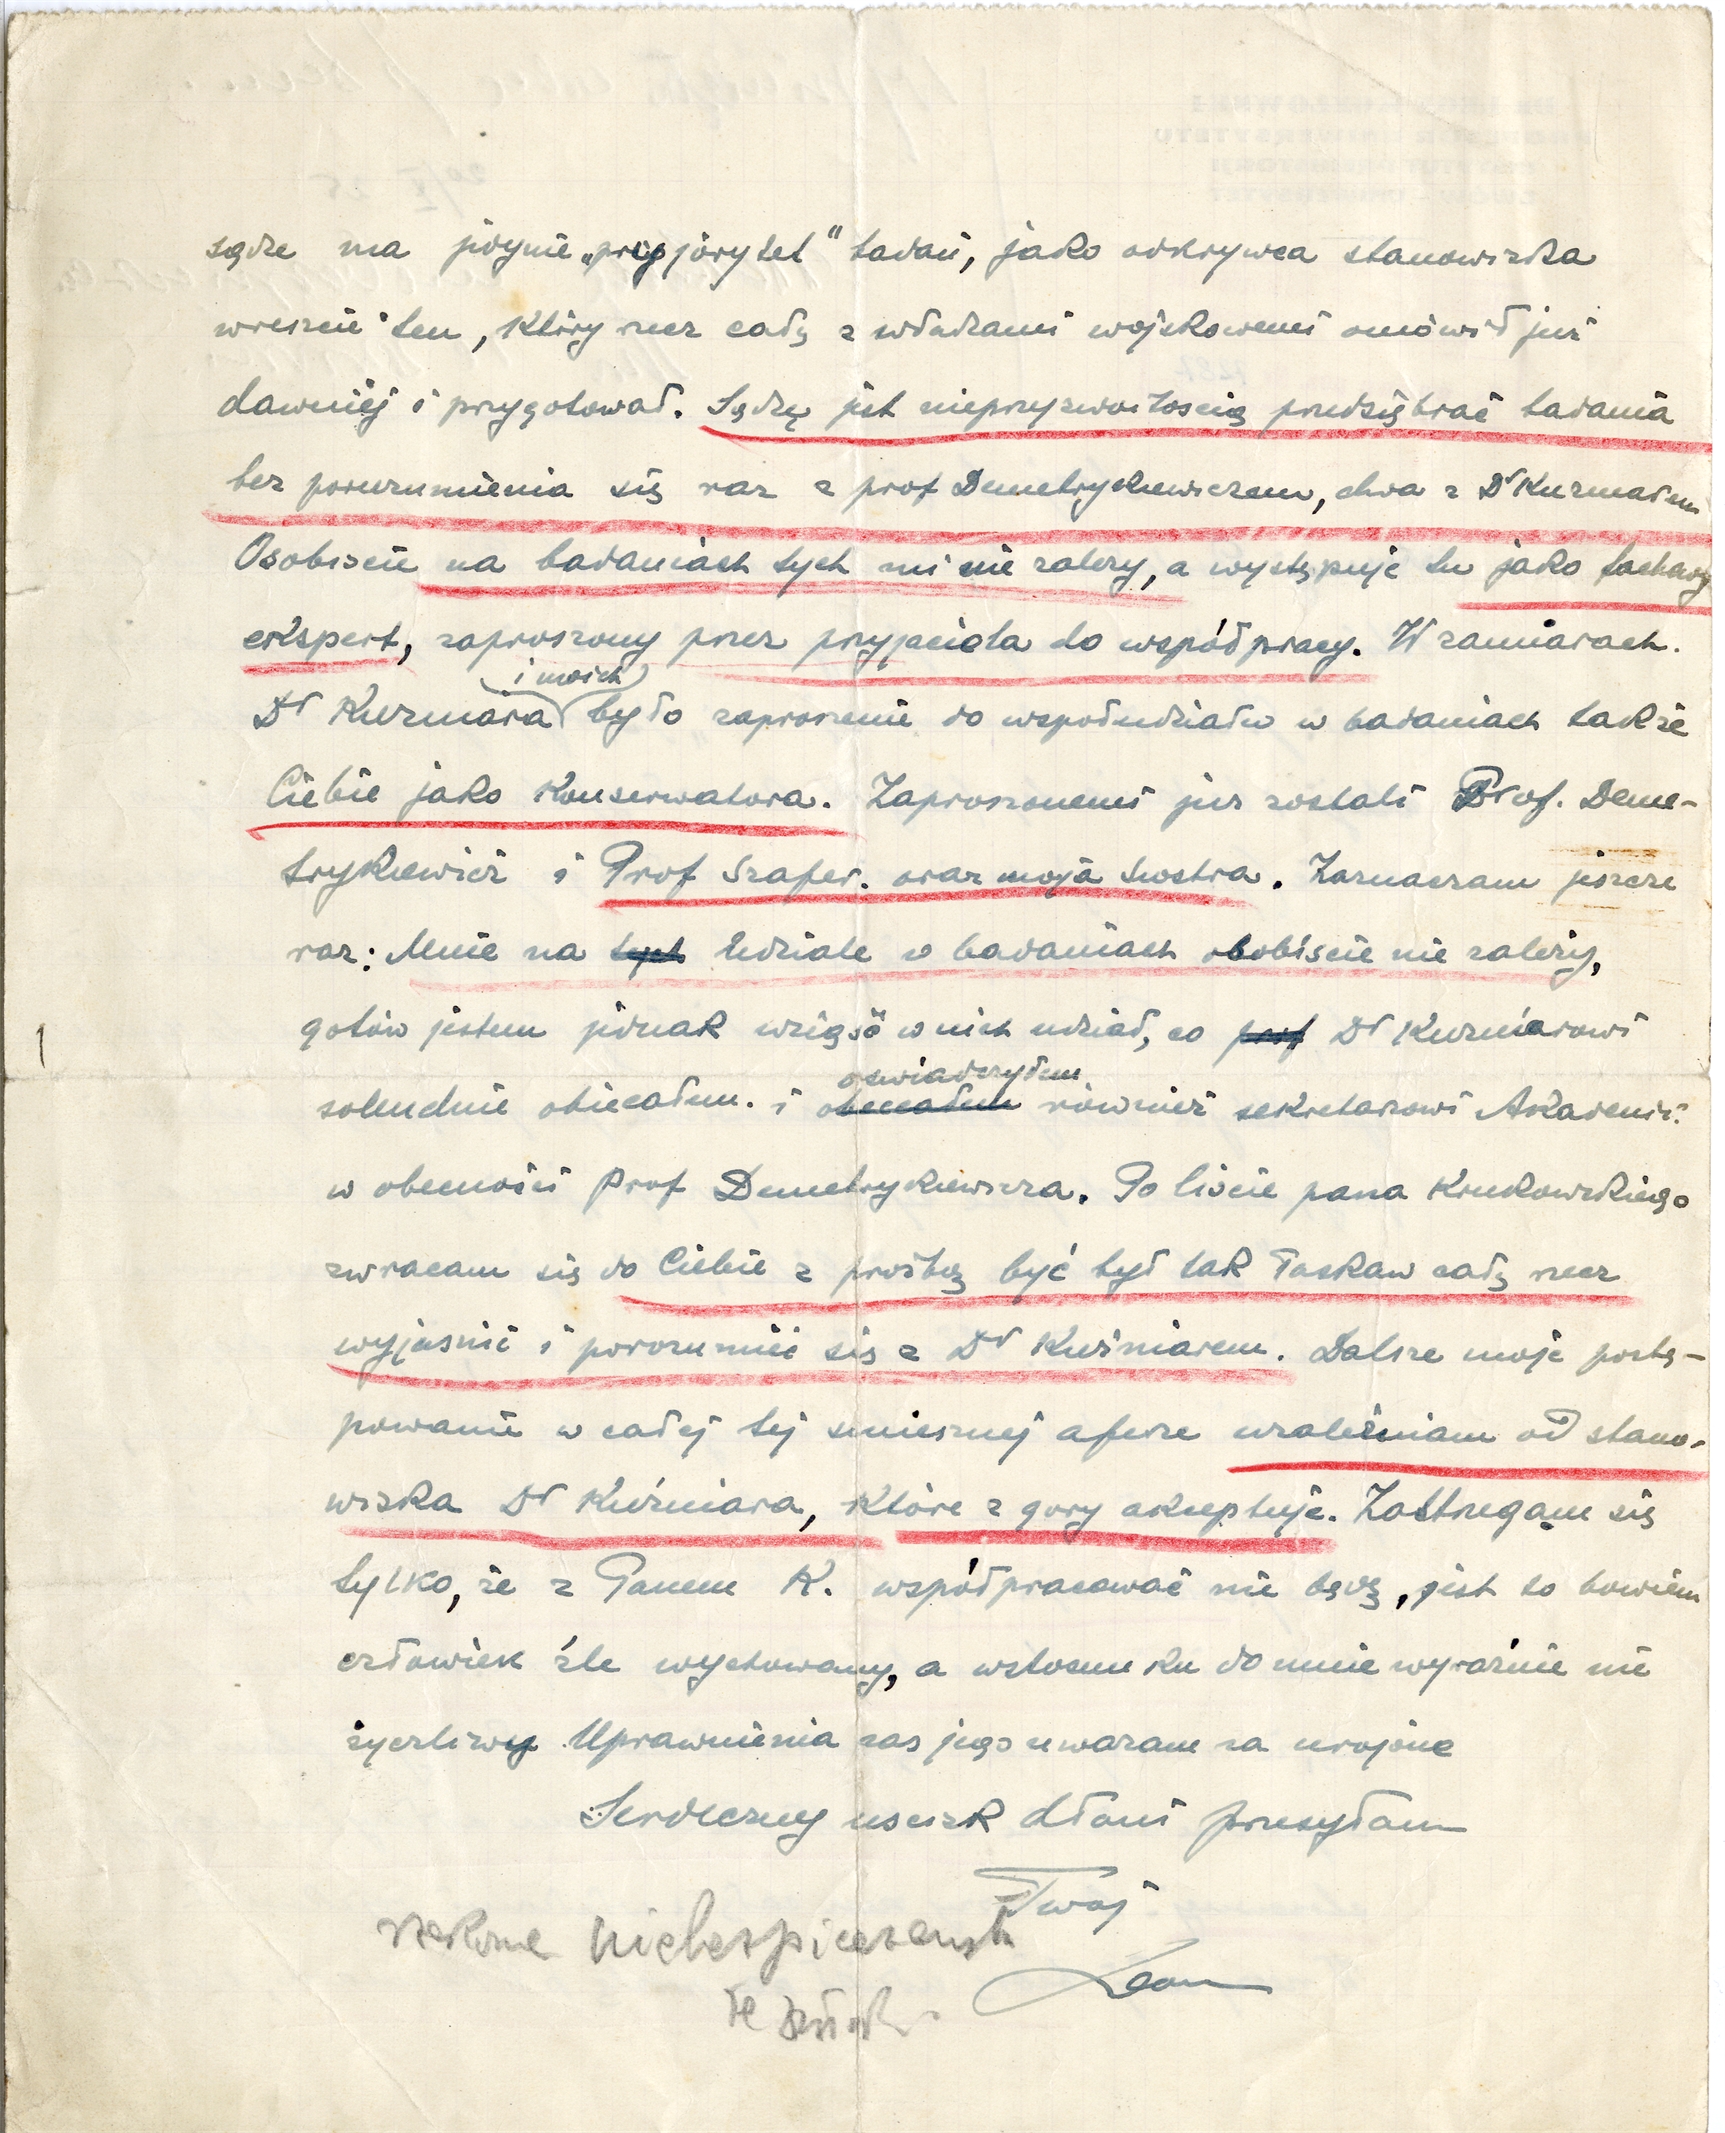 sądzę ma jedynie „pryjorytet" badań, jako odkrywca stanowiska
wreszcie ten, który rzecz całą z władzami wojskowemi omówił już
dawniej i przygotował. Sądzę jest nieprzyzwoitością przedsiębrać badania
bez porozumienia się raz z prof Demetrykiewiczem, dwa z Dr Kuźniarem
Osobiscie na badaniach tych mi nie zależy, a występuję tu jako fachowy
ekspert, zaproszony przez przyjaciela do współpracy. W zamiarach
i moich
Dr Kuźniara było zaproszenie do współudziału w badaniach także
Ciebie jako Konserwatora. Zaproszonemi już zostali Prof. Deme-
trykiewicz i Prof Szafer. oraz moja siostra. Zaznaczam jeszcze
raz: Mnie na tych udziale w badaniach osobiście nie zależy,
gotów jestem jednak wziąść w nich udział, co prof Dr Kuźniarowi
oświadczyłem
solennie obiecałem. i obiecałem również sekretarzowi Akademii
w obecności Prof Demetrykiewicza. Po liście pana Krukowskiego
zwracam się do Ciebie z prośbą być był tak łaskaw całą rzecz
wyjaśnić i porozumieć się z Dr Kuźniarem. Dalsze moje postę-
powanie w całej tej śmiesznej aferze uzależniam od stano-
wiska Dr Kuźniara, które z gory akceptuję. Zastrzegam się
tylko, że z Panem K. współpracować nie będę, jest to bowiem
człowiek źle wychowany, a wstosunku do mnie wyraźnie nie
życzliwy Uprawnienia zas jego uwazam za urojone
Serdeczny uscisk dłoni przesyłam
Twój
Leon
rzekome niebezpieczenstw